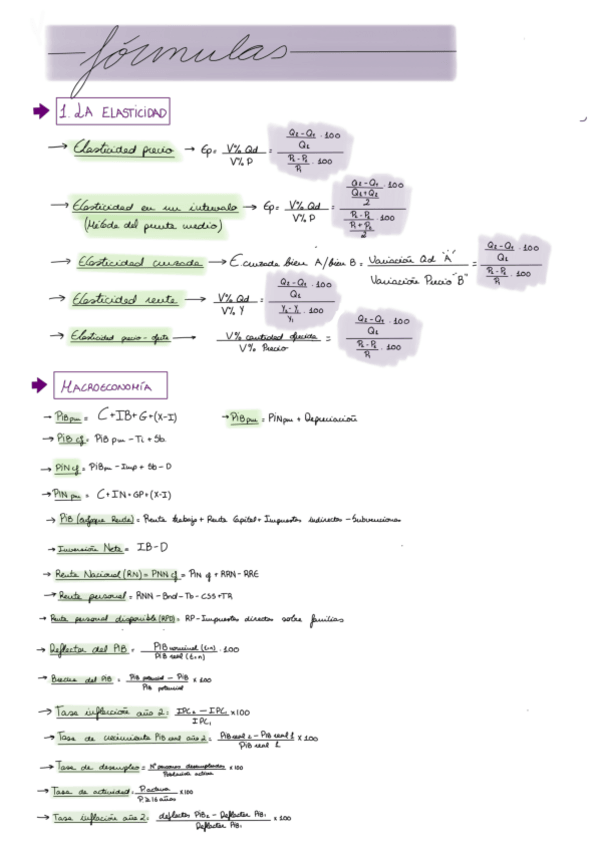 fórmulas
1. LA ELASTICIDAD
→ Elasticidad precio → Ep = V% Qd / V% P = (Q2 - Q1 / Q1 · 100) / (P2 - P1 / P1 · 100)
→ Elasticidad en un intervalo → Ep = V% Qd / V% P = (Q2 - Q1 / (Q1 + Q2 / 2) · 100) / (P2 - P1 / (P1 + P2 / 2) · 100)
(Método del punto medio)
→ Elasticidad cruzada → E cruzada bien A/bien B = Variación Qd "A" / Variación Precio "B" = (Q2 - Q1 / Q1 · 100) / (P2 - P1 / P1 · 100)
→ Elasticidad renta → V% Qd / V% Y = (Q2 - Q1 / Q1 · 100) / (Y2 - Y1 / Y1 · 100)
→ Elasticidad precio - oferta → V% cantidad ofrecida / V% Precio = (Q2 - Q1 / Q1 · 100) / (P2 - P1 / P1 · 100)
MACROECONOMÍA
→ PIB pm = C + IB + G + (X-I) → PIB pm = PIN pm + Depreciación
→ PIB cf = PIB pm - Ti + Sb
→ PIN cf = PIB pm - Imp + Sb - D
→ PIN pm = C + IN + GP + (X-I)
→ PIB (enfoque Renta) = Renta trabajo + Renta Capital + Impuestos indirectos - Subvenciones
→ Inversión Neta = IB - D
→ Renta Nacional (RN) = PNN cf = PIN cf + RRN - RRE
→ Renta personal = RNN - Bnd - Tb - CSS + TR
→ Renta personal disponible (RPD) = RP - Impuestos directos sobre familias
→ Deflactor del PIB = PIB nominal (t=n) / PIB real (t=n) · 100
→ Brecha del PIB = PIB potencial - PIB / PIB potencial x 100
→ Tasa inflación año 2: IPC2 - IPC1 / IPC1 x100
→ Tasa de crecimiento PIB real año 2 = PIB real 2 - PIB real 1 / PIB real 1 x 100
→ Tasa de desempleo = Nº personas desempleadas / Población activa x 100
→ Tasa de actividad = P. activa / P. ≥ 16 años x 100
→ Tasa inflación año 2: deflactor PIB2 - Deflactor PIB1 / Deflactor PIB1 x 100